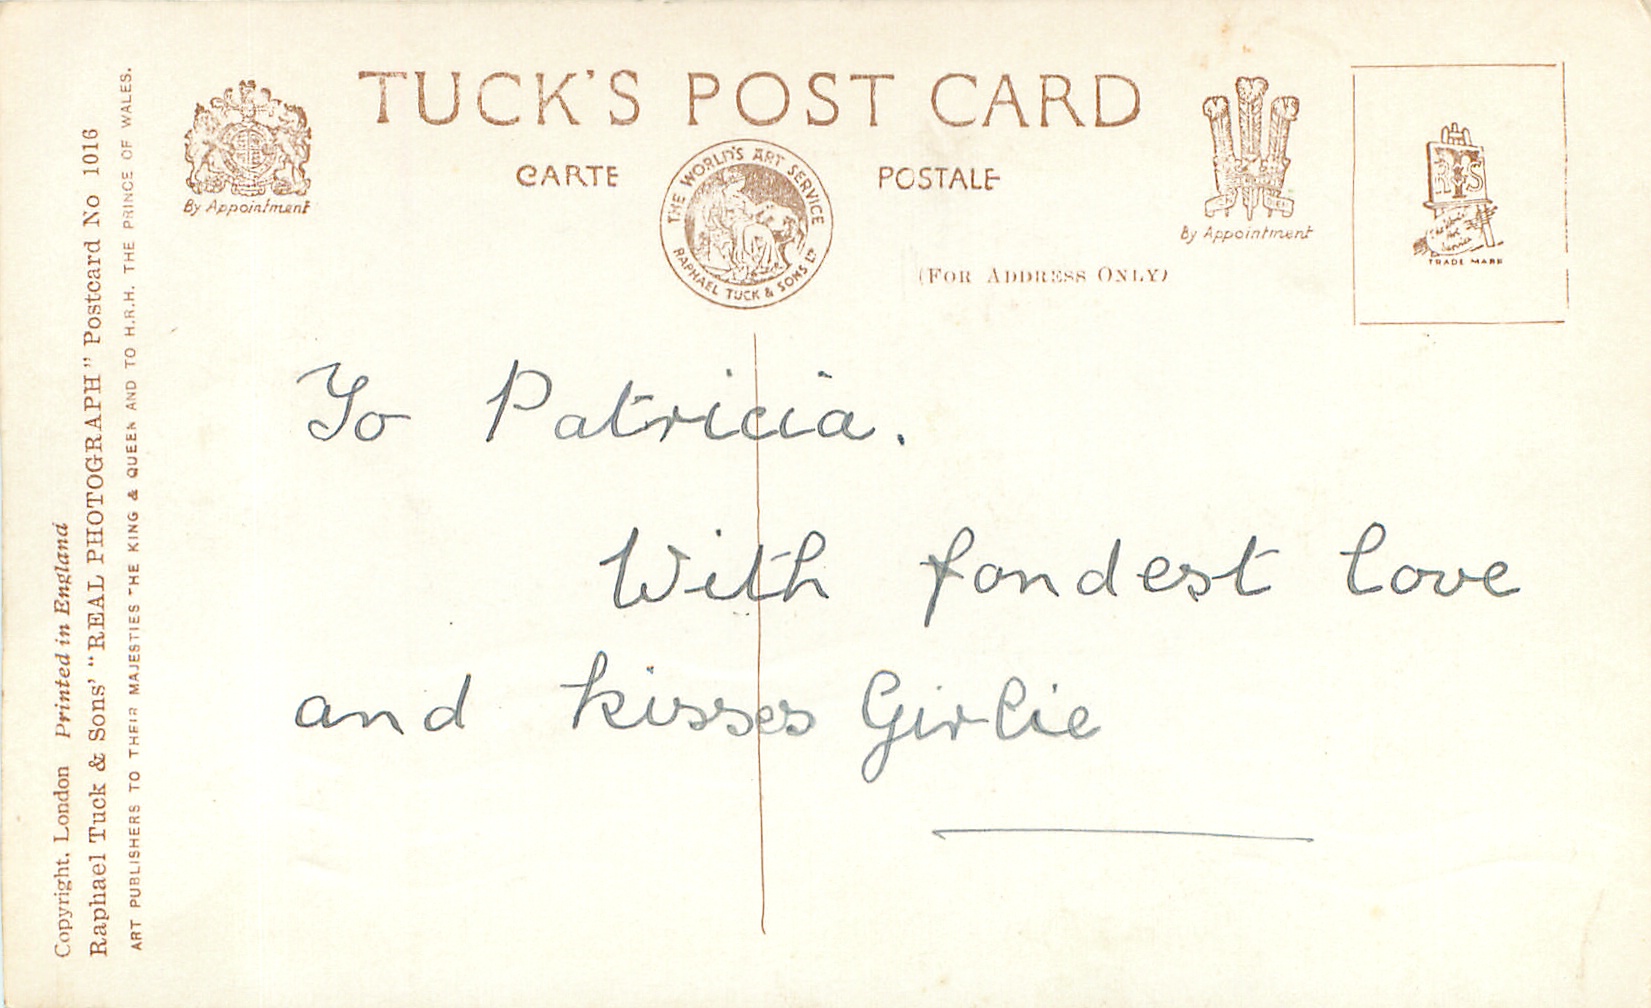 TUCK'S POST CARD
CARTE POSTALE
THE WORLD'S ART SERVICE
RAPHAEL TUCK & SONS LD
By Appointment
By Appointment
(FOR ADDRESS ONLY)
R T S
TRADE MARK
To Patricia.
With fondest love
and kisses Girlie
Copyright, London Printed in England
Raphael Tuck & Sons' "REAL PHOTOGRAPH" Postcard No 1016
ART PUBLISHERS TO THEIR MAJESTIES THE KING & QUEEN AND TO H.R.H. THE PRINCE OF WALES.